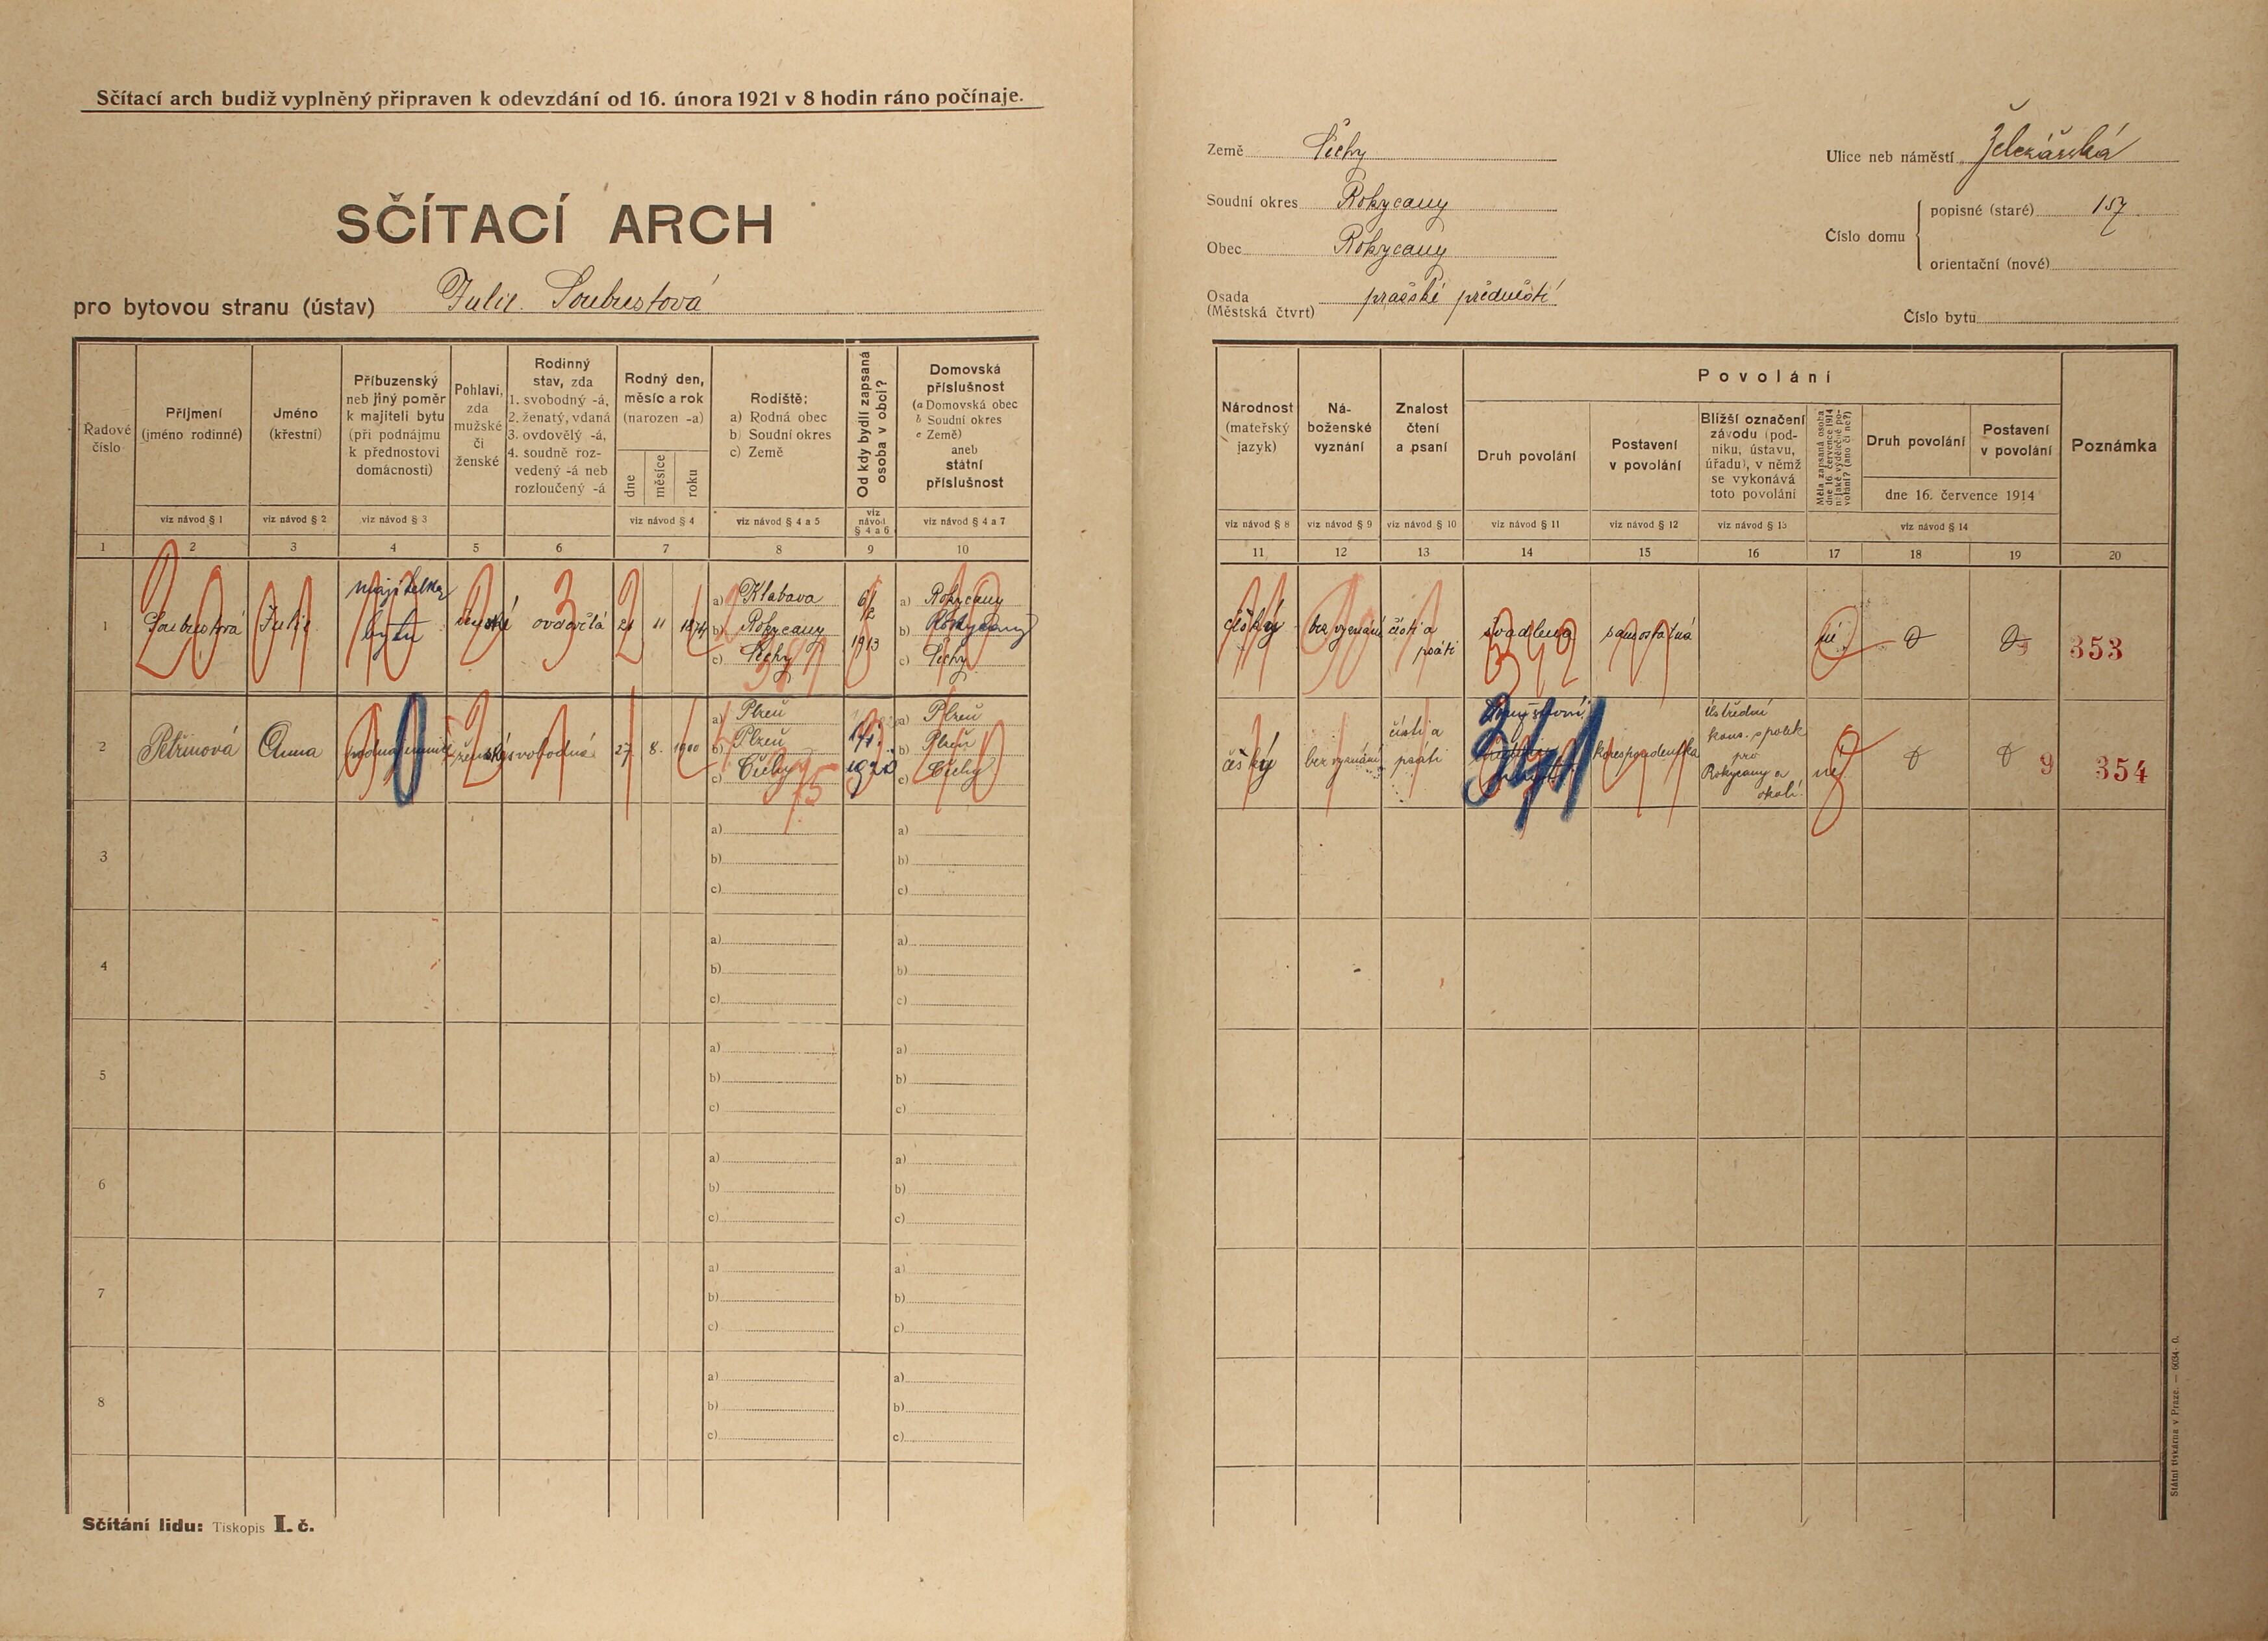 Sčítací arch budiž vyplněný připraven k odevzdání od 16. února 1921 v 8 hodin ráno počínaje.
SČÍTACÍ ARCH
pro bytovou stranu (ústav) Julie Soubustová
Země Čechy
Soudní okres Rokycany
Obec Rokycany
Osada
(Městská čtvrť) pražské předměstí
Ulice neb náměstí Železářská
Číslo domu
popisné (staré) 157
orientační (nové)
Číslo bytu
Řadové
číslo
Příjmení
(jméno rodinné)
viz návod § 1
Jméno
(křestní)
viz návod § 2
Příbuzenský
neb jiný poměr
k majiteli bytu
(při podnájmu
k přednostovi
domácnosti)
viz návod § 3
Pohlaví,
zda
mužské
či
ženské
Rodinný
stav, zda
1. svobodný -á,
2. ženatý, vdaná
3. ovdovělý -á,
4. soudně roz-
vedený -á neb
rozloučený -á
Rodný den,
měsíc a rok
(narozen -a)
dne
měsíce
roku
viz návod § 4
Rodiště:
a) Rodná obec
b) Soudní okres
c) Země
viz návod § 4 a 5
Od kdy bydlí zapsaná
osoba v obci?
viz
návod
§ 4 a 6
Domovská
příslušnost
(a Domovská obec
b Soudní okres
c Země)
aneb
státní
příslušnost
viz návod § 4 a 7
Národnost
(mateřský
jazyk)
viz návod § 8
Ná-
boženské
vyznání
viz návod § 9
Znalost
čtení
a psaní
viz návod § 10
Povolání
Druh povolání
viz návod § 11
Postavení
v povolání
viz návod § 12
Bližší označení
závodu (pod-
niku, ústavu,
úřadu), v němž
se vykonává
toto povolání
viz návod § 13
Měla zapsaná osoba
dne 16. července 1914
nějaké výdělečné po-
volání? (ano či ne?)
Druh povolání
Postavení
v povolání
dne 16. července 1914
viz návod § 14
Poznámka
1 2 3 4 5 6 7 8 9 10 11 12 13 14 15 16 17 18 19 20
1 Soubustová Julie majitelka bytu ženské ovdovělá 21 11 1874
a) Klabava
b) Rokycany
c) Čechy
6/2 1913
a) Rokycany
b) Rokycany
c) Čechy
český bez vyznání čísti a psáti švadlena samostatná ne 0 0 353
2 Petřinová Anna podnájemnice ženské svobodná 27 8. 1900
a) Plzeň
b) Plzeň
c) Čechy
1920
a) Plzeň
b) Plzeň
c) Čechy
český bez vyznání čísti a psáti korespondentka
Ústřední
kons. spolek
pro
Rokycany a
okolí.
ne 0 0 9 354
3
a)
b)
c)
a)
b)
c)
4
a)
b)
c)
a)
b)
c)
5
a)
b)
c)
a)
b)
c)
6
a)
b)
c)
a)
b)
c)
7
a)
b)
c)
a)
b)
c)
8
a)
b)
c)
a)
b)
c)
Sčítání lidu: Tiskopis I. č.
Státní tiskárna v Praze. — 6034-0.